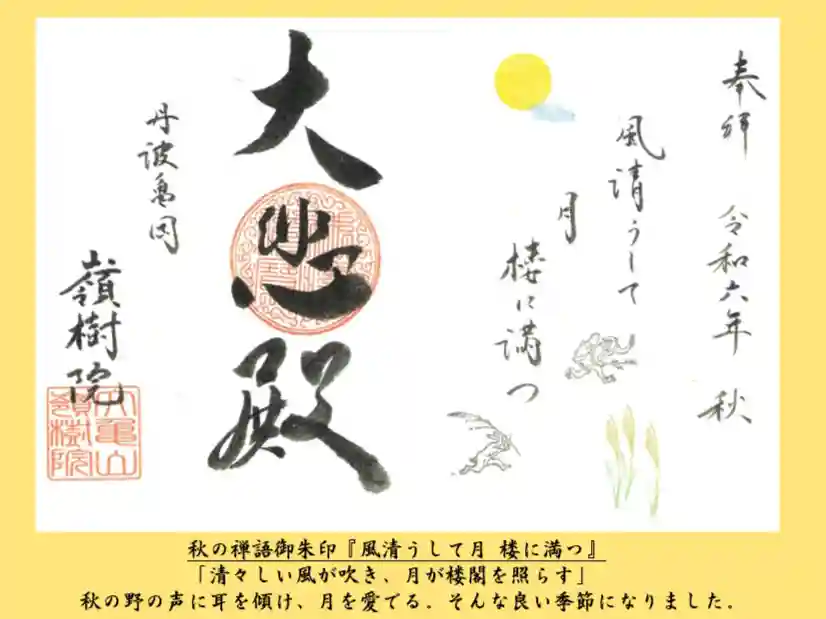 奉拝 令和六年 秋
風清うして
月
楼に満つ
大悲殿
丹波亀岡
嶺樹院
大亀山
嶺樹院
秋の禅語御朱印『風清うして月 楼に満つ』
「清々しい風が吹き、月が楼閣を照らす」
秋の野の声に耳を傾け、月を愛でる。そんな良い季節になりました。